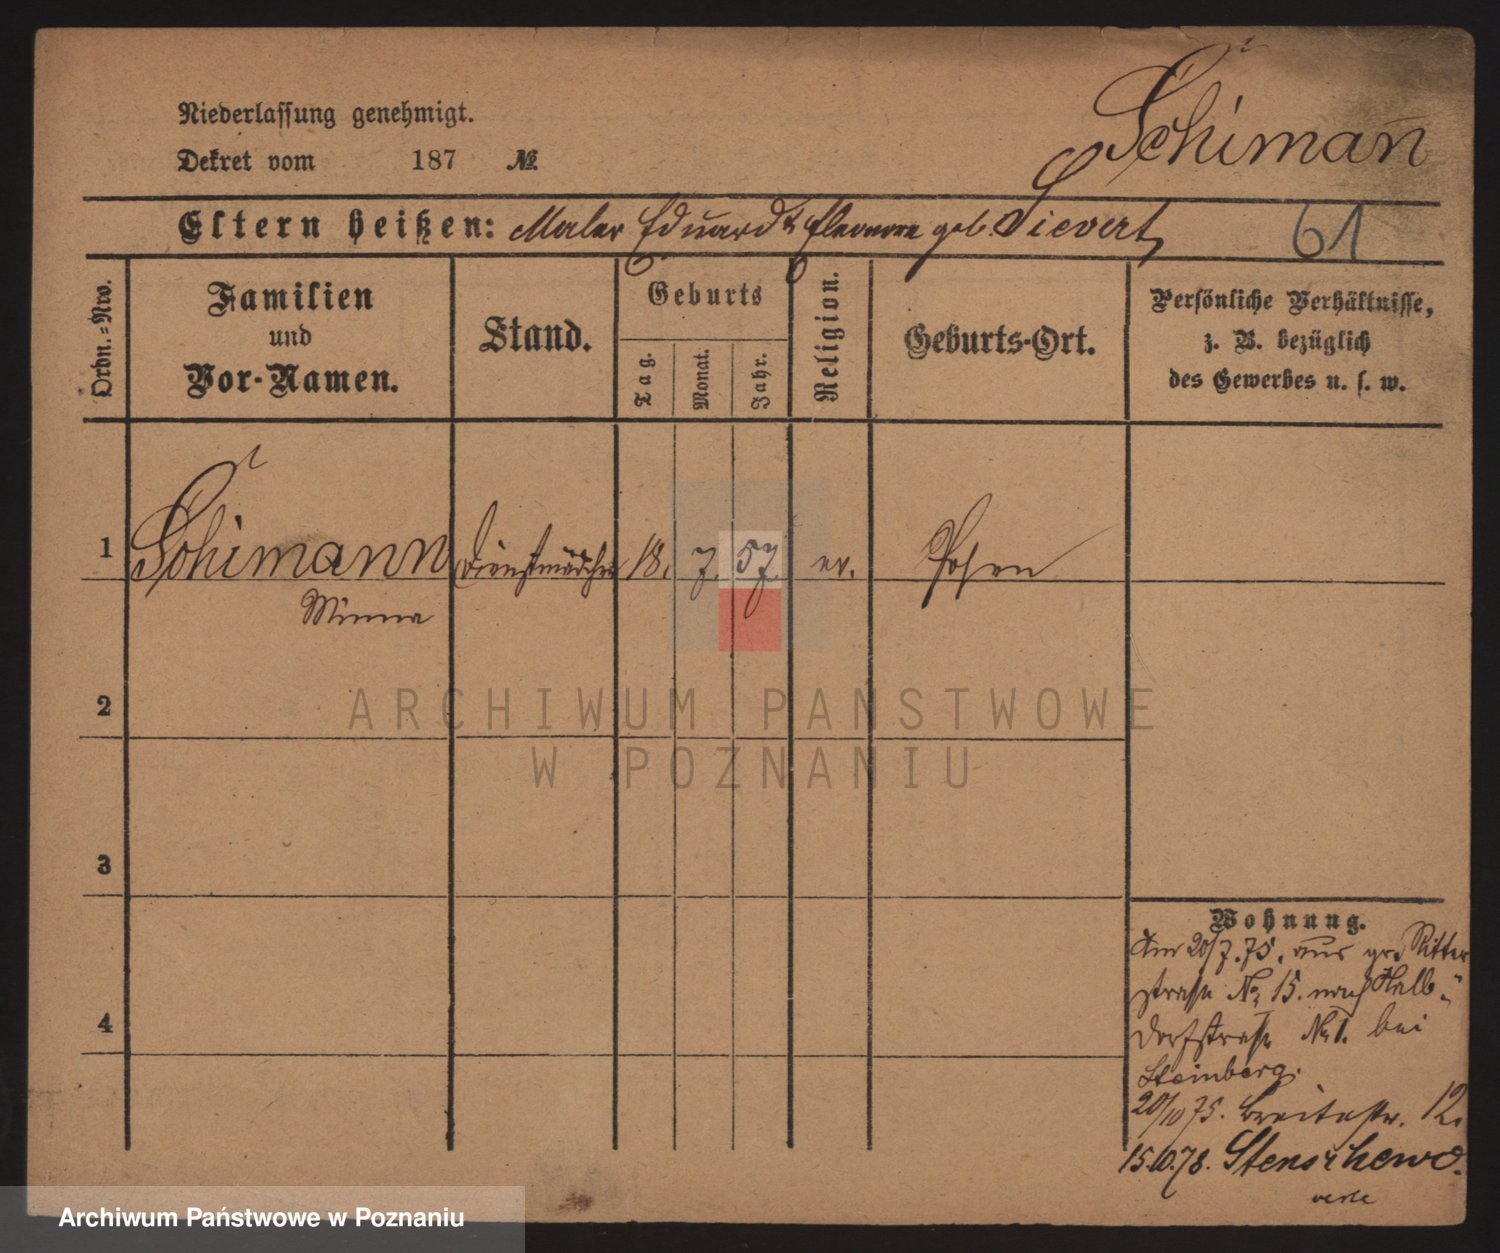 Schiman̄
Niederlassung genehmigt.
Dekret vom 187 №
Eltern heißen: Maler Eduard & Eleonore geb. Sievert
61
Ordn.=Nro.
Familien
und
Vor-Namen.
Stand.
Geburts
Tag.
Monat.
Jahr.
Religion.
Geburts-Ort.
Persönliche Verhältnisse,
z. B. bezüglich
des Gewerbes u. s. w.
1 Schimann Dienstmädchen 18. 7. 57. ev. Posen
Minna
2
ARCHIWUM PAŃSTWOWE
W POZNANIU
3
Wohnung.
Am 20/7.75. aus gr. Ritter
straße No 15. nach Halb-
dorfstraße No 1. bei
Steinberg.
20/10 75. Breitestr. 12.
15.10.78. Stenschewo.
4
Archiwum Państwowe w Poznaniu